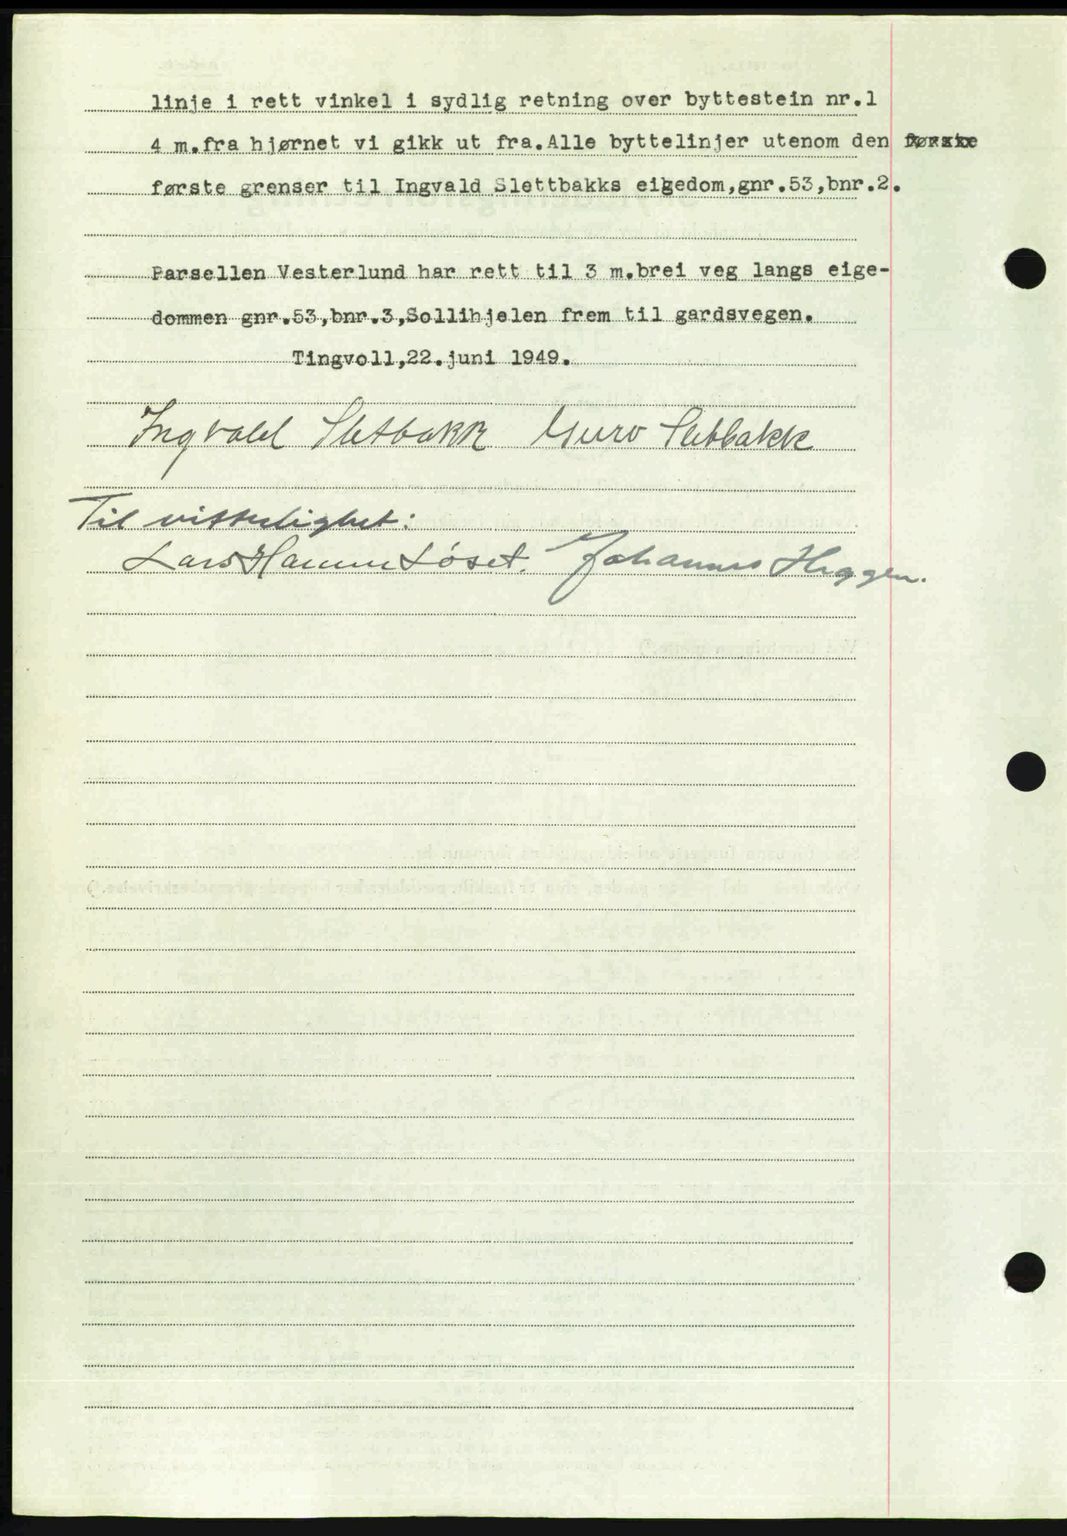 linje i rett vinkel i sydlig retning over byttestein nr.1
4 m.fra hjørnet vi gikk ut fra.Alle byttelinjer utenom den
første grenser til Ingvald Slettbakks eigedom,gnr.53,bnr.2.
Parsellen Vesterlund har rett til 3 m.brei veg langs eige-
dommen gnr.53,bnr.3,Sollihjelen frem til gardsvegen.
Tingvoll,22.juni 1949.
Ingvald Sletbakk Guro Sletbakk
Til vitterlighet:
Lars Hamme Løset. Johannes Heggen.